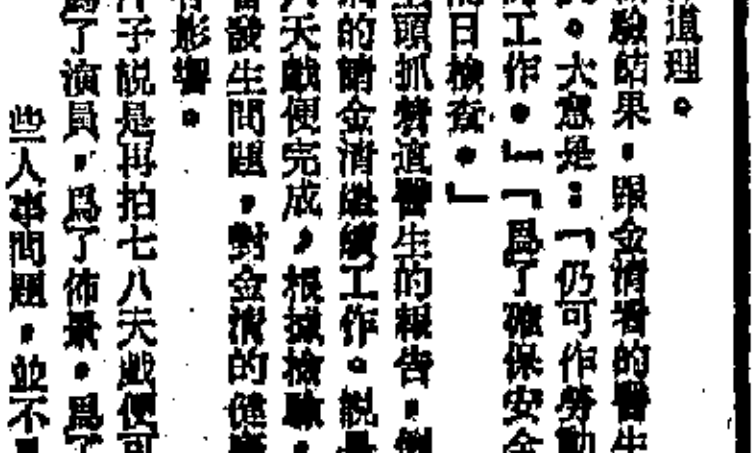 道理。
驗結果,跟金清看的醫生
。大意是:「仍可作勞動
工作。」「爲了確保安全
日檢查。」
頭抓着這醫生的報告,倒
的請金清繼續工作。說是
天戲便完成,根據檢驗,
發生問題,對金清的健康
影響。
子說是再拍七八天戲便可
爲了演員,爲了佈景,爲了
些人事問題,並不